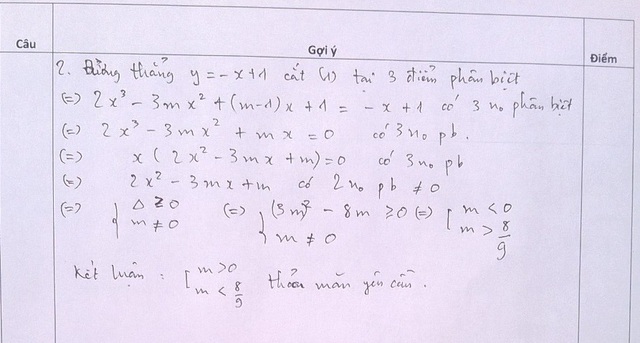 Câu Gợi ý Điểm
2. Đường thẳng y = -x+1 cắt (1) tại 3 điểm phân biệt
(=) 2x³ - 3mx² + (m-1)x + 1 = -x + 1 có 3 n₀ phân biệt
(=) 2x³ - 3mx² + mx = 0 có 3 n₀ pb.
(=) x(2x² - 3mx + m) = 0 có 3 n₀ pb
(=) 2x² - 3mx + m có 2 n₀ pb ≠ 0
(=) { Δ ≥ 0 (=) { (3m)² - 8m ≥ 0 (=) [ m < 0
m ≠ 0 m ≠ 0 m > 8/9
Kết luận : [ m > 0 thỏa mãn yêu cầu.
m < 8/9